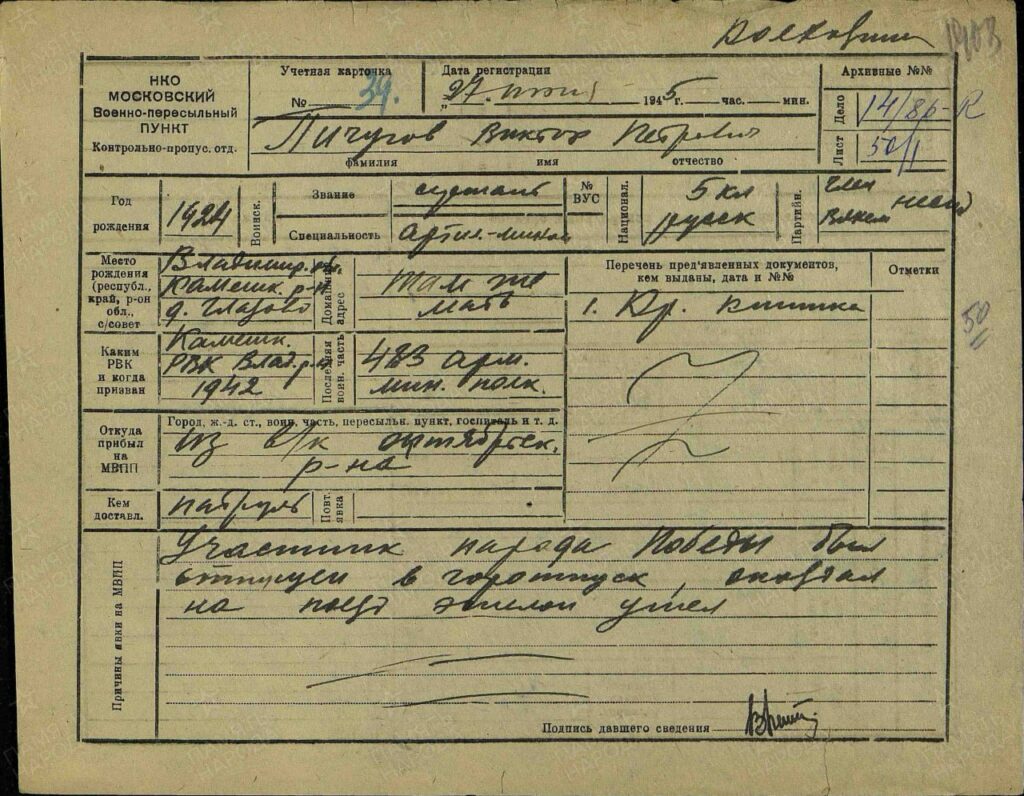 1903
НКО
МОСКОВСКИЙ
Военно-пересыльный
ПУНКТ
Контрольно-пропус. отд.
Учетная карточка
№ 39.
Дата регистрации
„27. июня 1945 г. час. мин.
Архивные №№
Дело 14/8р-R
Лист 50/1
Пичугов Виктор Петрович
фамилия имя отчество
Год
рождения
1924
Воинск.
Звание
Специальность
сержант
№
ВУС
Национал.
5 кл
русск
Партийн.
член
Место
рождения
(республ.,
край, р-он
обл.,
с/совет
Владимир. об.
Камешк. р-н
д. Глазово
Домашний
адрес
там же
мать
Перечень пред'явленных документов,
кем выданы, дата и №№
Отметки
1. Кр. книжка
50
Каким
РВК
и когда
призван
Камешк.
РВК Влад.
1942
Последняя
воин. часть
483 арм.
мин. полк.
Откуда
прибыл
на
МВПП
Город, ж.-д. ст., воин. часть, пересыльн. пункт, госпиталь и т. д.
из в/к октябрьск.
р-на
Кем
доставл.
патруль
Повт.
явка
Причины явки на МВПП
Участник парада Победы был
отпущен в горотпуск, опоздал
на поезд эшелон ушел
Подпись давшего сведения